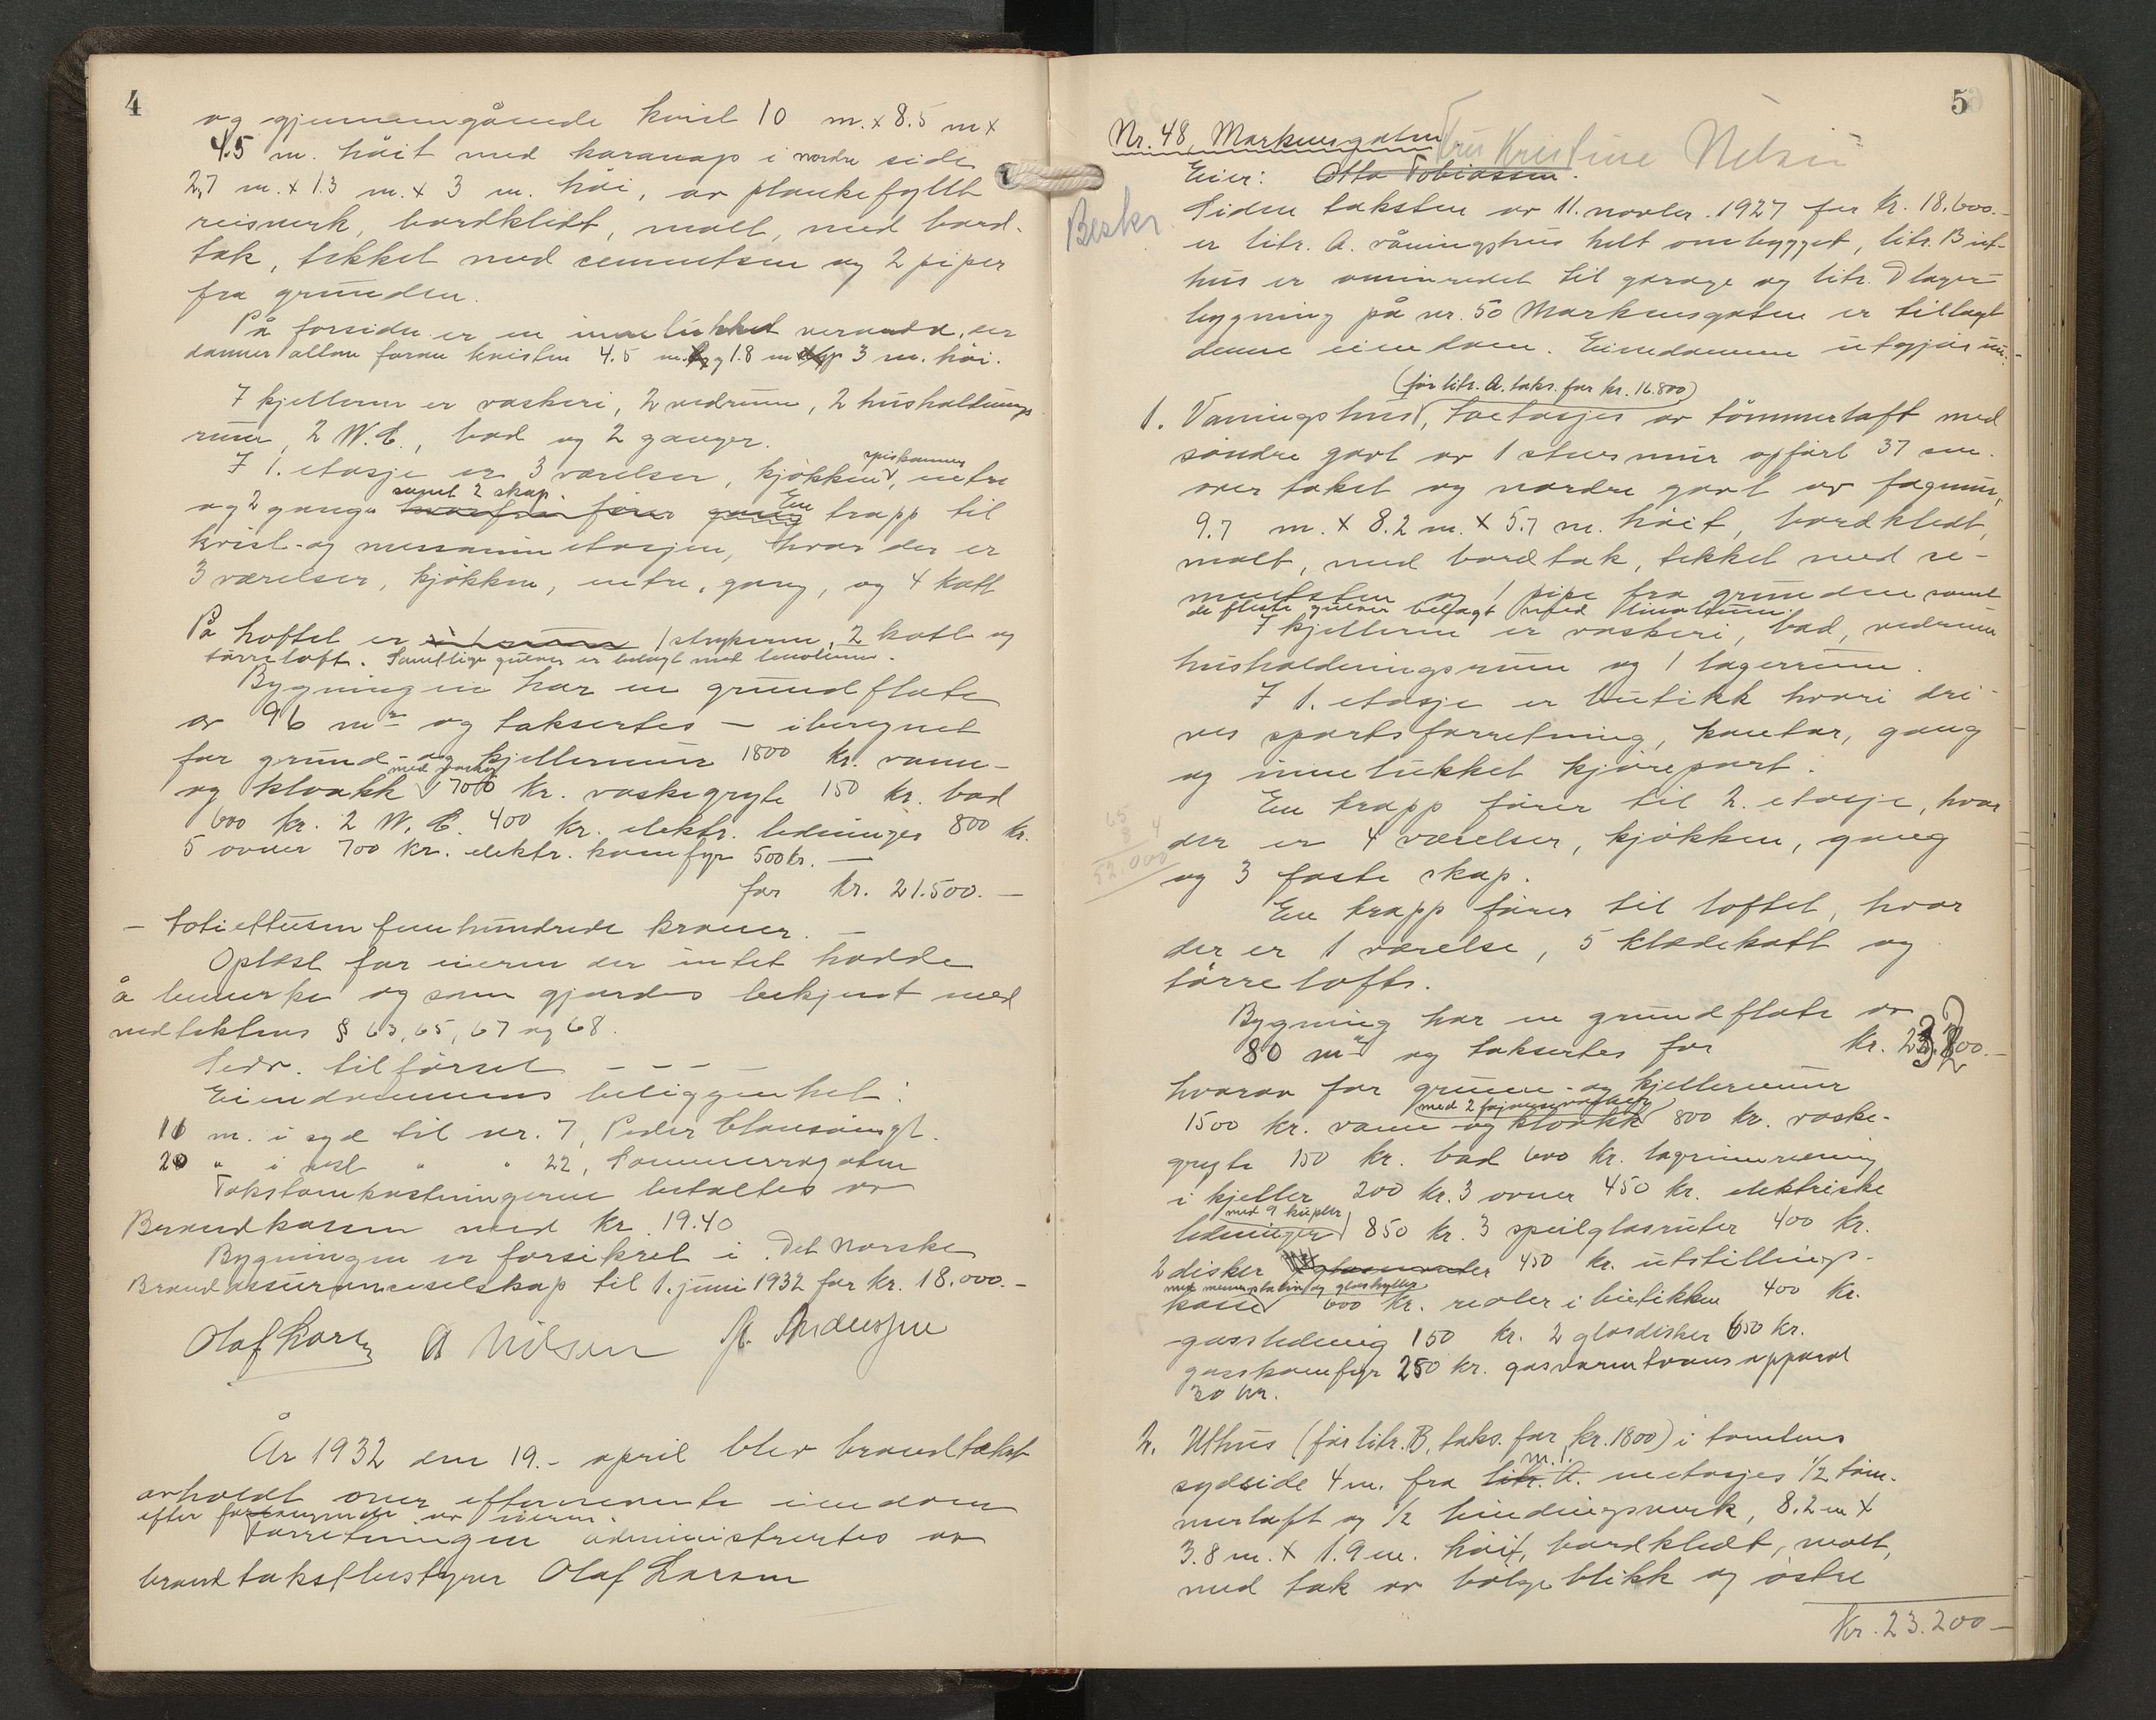 4
og gjennemgående kvist 10 m. x 8.5 m x
4.5 m. höit med karanap i nordre side
2,7 m. x 1.3 m. x 3 m. höi, av plankefyllt
reisverk, bordkledt, malt, med bord-
tak, tekket med cementsten og 2 piper
fra grunden.
På forsiden er en innelukket veranda, der
danner altan foran kvisten 4.5 m. og 1.8 m 3 m. höi.
I kjelleren er vaskeri, 2 vedrum, 2 husholtnings
rum, 2 W.C., bad og 2 ganger.
I 1. etasje er 3 værelser, kjökken, spiskammer, entre
og 2 ganger samt 2 skap. hvorfra förer gang En trapp til
kvist- og messaninetasjen, hvor der er
3 værelser, kjökken, entre, gang, og 4 kott
På loftet er 1 strykerum, 2 kott og
törreloft. Samtlige gulver er belagt med linoleum.
Bygningen har en grundflate
av 96 m² og taksertes – iberegnet
for grund- og kjellermur 1800 kr. vann-
og kloakk med vasker 700 kr. vaskegryte 150 kr. bad
600 kr. 2 W.C. 400 kr. elektr. ledninger 800 kr.
5 ovner 700 kr. elektr. komfyr 500 kr. —
for kr. 21.500. —
– totiettusen femhundrede kroner. —
Oplest for eieren der intet hadde
å bemerke og som gjordes bekjent med
vedtektens § 63, 65, 67 og 68.
Sedv. tilförsel – – –
Eiendommens beliggenhet:
10 m. i syd til nr. 7, Peder Clausöngt.
20 " i vest " " 22, Sommerrogaten
Takstomkostningerne betaltes av
Brandkassen med kr. 19.40
Bygningen er forsikret i Det Norske
Brandassuranceselskap til 1. juni 1932 for kr. 18.000.–
Olaf Larsen A Nilsen Andersen
År 1932 den 19.– april blev brandtakst
avholdt over efternevnte eiendom
efter forlangende av eieren.
Forretningen administrertes av
brandtakstbestyrer Olaf Larsen
5
Nr. 48, Markensgaten Fru Kristine Nilsen
Eier: Otto Tobiassen.
Beskr.
Siden taksten av 11. novbr. 1927 for kr. 18.600.–
er litr. A. våningshus helt ombygget, litr. B ut-
hus er ominnredet til garage og litr. D lager-
bygning på nr. 50 Markensgaten er tillagt
denne eiendom. Eiendommen utgjör nu:–
(för litr. A. taks. for kr. 16.800)
1. Vaningshus, toetasjes av tömmerlaft med
söndre gavl av 1 stens mur opfört 37 cm.
over taket og nordre gavl av fagmur,
9.7 m. x 8.2 m. x 5.7 m. höit, bordkledt,
malt, med bordtak, tekket med ce-
mentsten og 1 pipe fra grunden samt
de fleste gulver belagt med linoleum.
I kjelleren er vaskeri, bad, vedrum
husholdningsrum og 1 lagerrum.
I 1. etasje er butikk hvori dri-
ves sportsforretning, kontor, gang
og innelukket kjöreport.
En trapp förer til 2. etasje, hvor
65
8 4
52.000
der er 4 værelser, kjökken, gang
og 3 faste skap.
En trapp förer til loftet, hvor
der er 1 værelse, 5 klædekott og
törreloft.
Bygning har en grundflate av
80 m² og taksertes for kr. 23.200.–
hvorav for grunn- og kjellermur
1500 kr. vann- og kloakk med 2 fajansevasker 800 kr. vaske-
gryte 150 kr. bad 600 kr. lagerinnredning
i kjeller 200 kr. 3 ovner 450 kr. elektriske
ledninger med 9 kupler 850 kr. 3 speilglasruter 400 kr.
2 disker 450 kr. utstillings-
kasse og glashyller 600 kr. reoler i butikken 400 kr.
gassledning 150 kr. 2 glasdisker 650 kr.
gasskomfyr 250 kr. gasvarmtvansapparat
30 kr.
2. Uthus (för litr. B, taks. for kr. 1800) i tomtens
sydside 4 m. fra litr. A. nr. 1. enetasjes 1/2 töm-
merlaft og 1/2 bindingsverk, 8.2 m x
3.8 m. x 1.9 m. höit, bordkledt, malt,
med tak av bölgeblikk og östre
Kr. 23.200 –